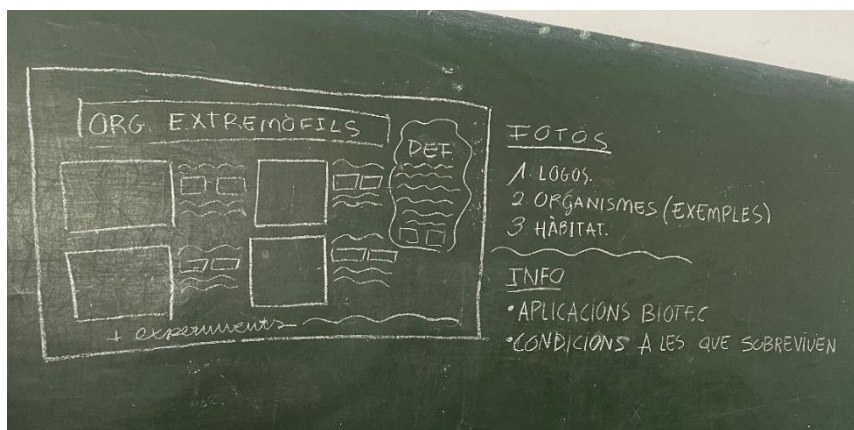 ORG. EXTREMÒFILS
DEF
+ experiments
FOTOS
1. LOGOS.
2 ORGANISMES (EXEMPLES)
3 HÀBITAT.
INFO
• APLICACIONS BIOTEC
• CONDICIONS A LES QUE SOBREVIUEN